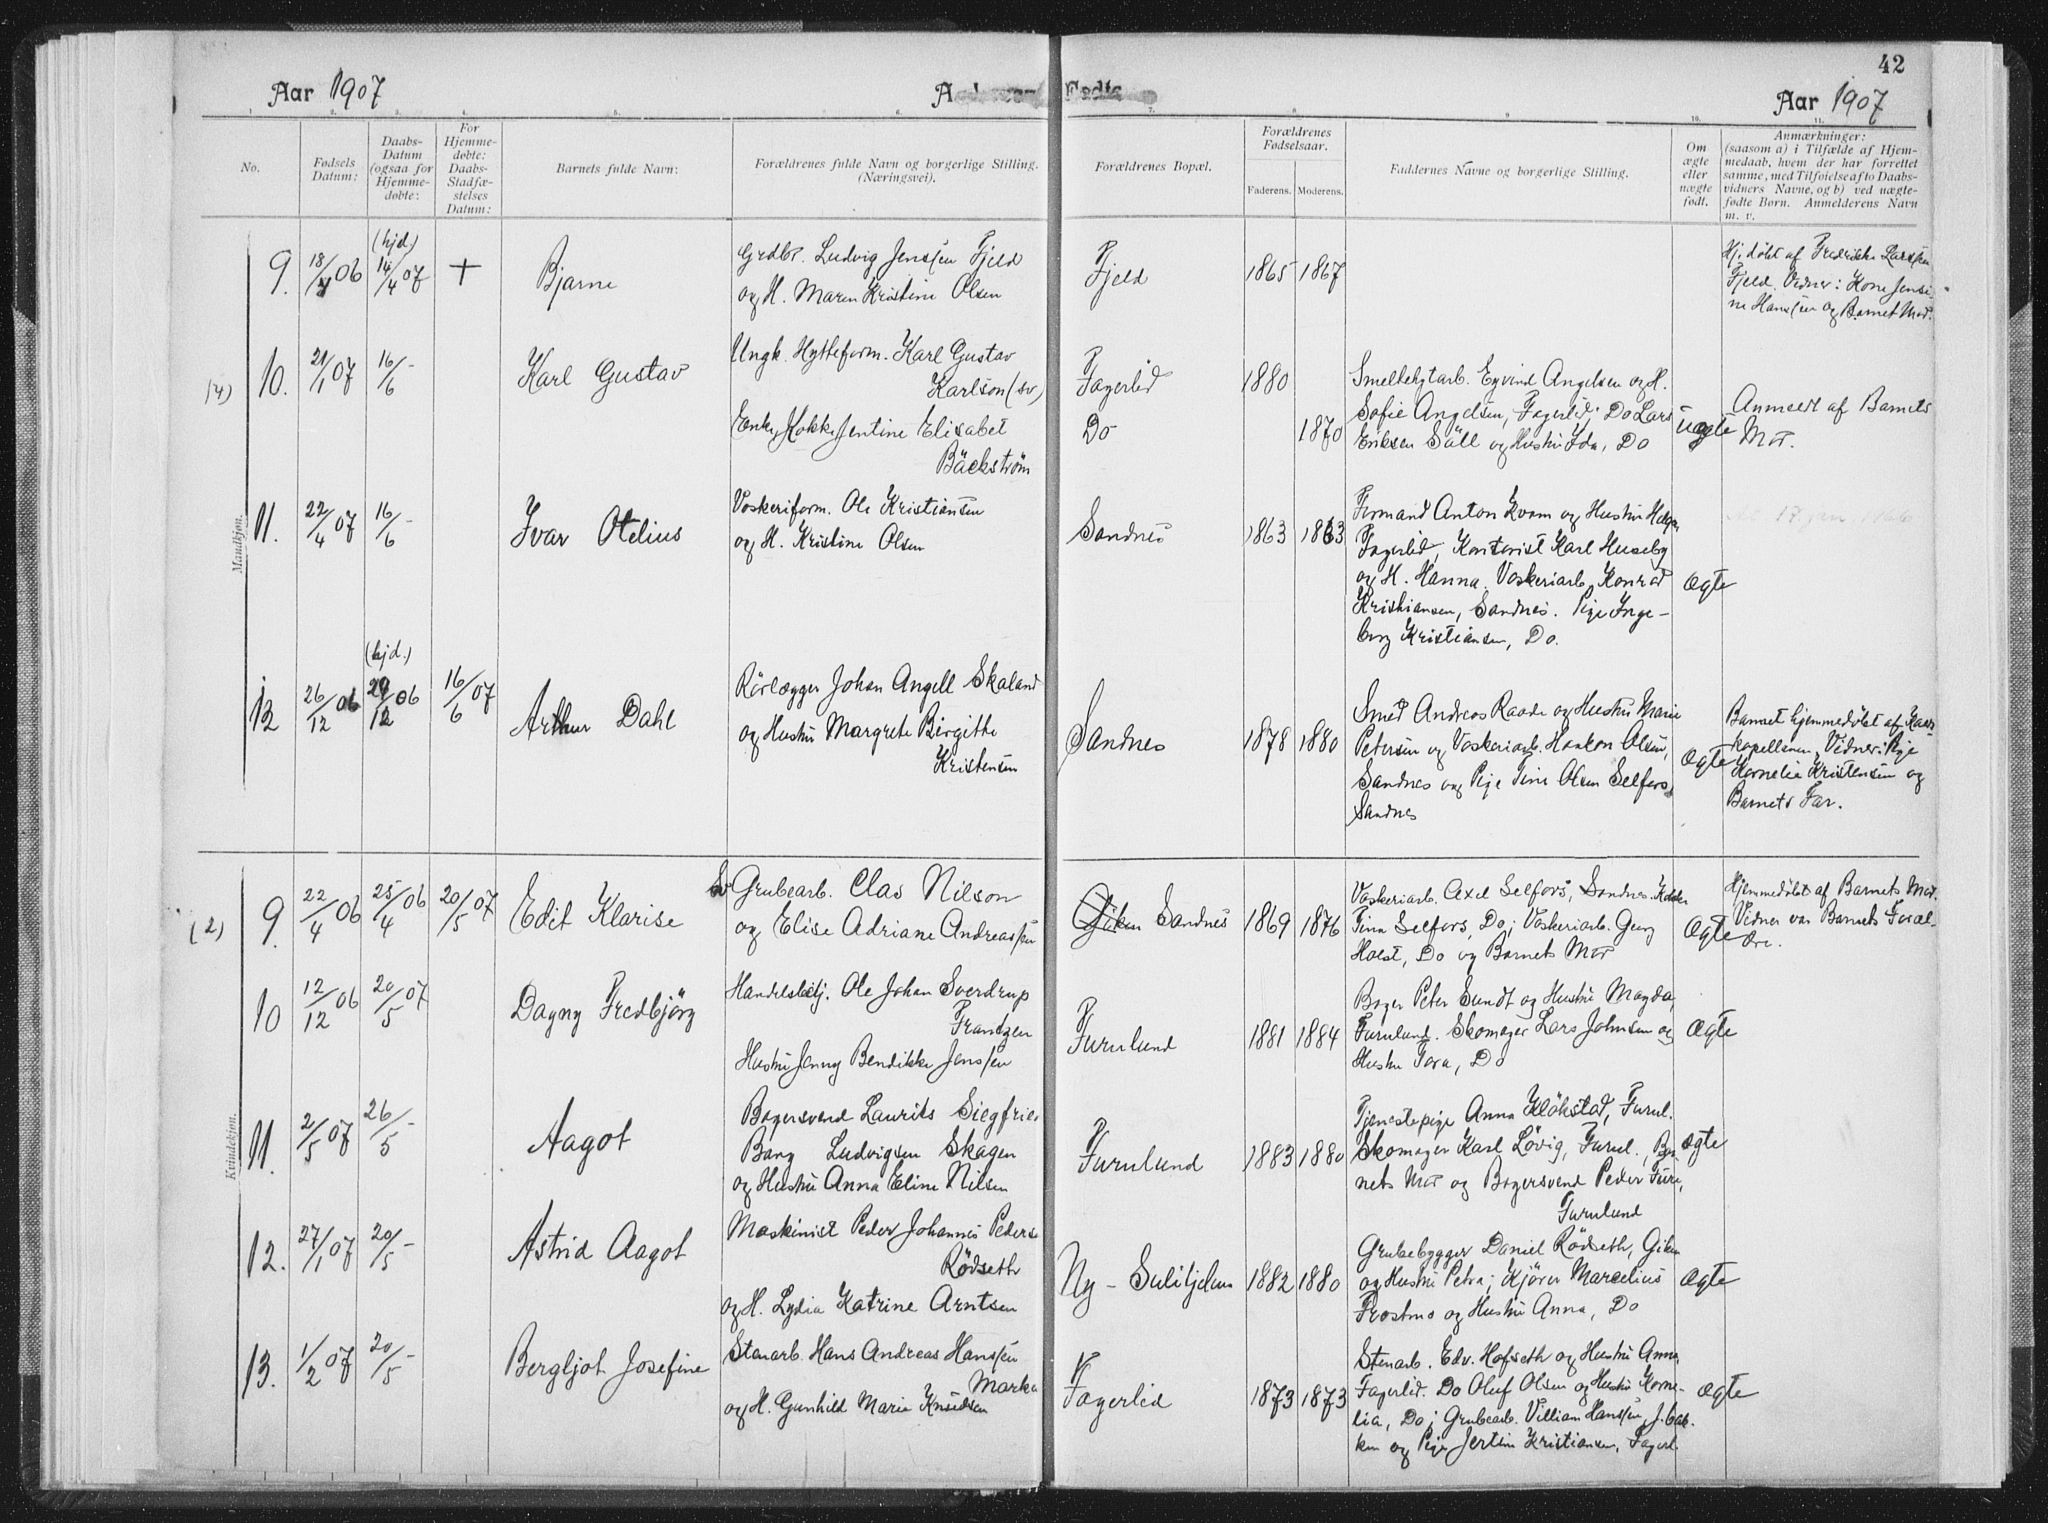 42
Aar 1907
Fødte
Aar 1907
No.
Fødsels Datum:
Daabs-Datum (ogsaa for Hjemmedøbte:
For Hjemmedøbte: Daabs-Stadfæstelses Datum:
Barnets fulde Navn:
Forældrenes fulde Navn og borgerlige Stilling. (Næringsvei).
Forældrenes Bopæl.
Forældrenes Fødselsaar.
Faderens. Moderens.
Faddernes Navne og borgerlige Stilling.
Om ægte eller uægte født.
Anmærkninger:
(saasom a) i Tilfælde af Hjem-
medaab, hvem der har forrettet
samme, med Tilføielse af to Daabs-
vidners Navne, og b) ved uægte-
fødte Børn. Anmelderens Navn
m. v.
Mandkjøn.
9. 18/ 06 (hjd) 14/4 07 + Bjarne
Grdbr. Ludvig Jenssen Fjeld
og H. Maren Kristine Olsen
Fjeld 1865 1867
Hj. døbt af Fredrikke Larssen
Fjeld. Vidner: Kone Jensi-
ne Hanssen og Barnet Mor.
(4) 10. 21/1 07 16/6 - Karl Gustav
Ungk. Hytteform. Karl Gustav
Karlson (sv)
Enke, Kokke Jentine Elisabet
Bäckström
Fagerlid 1880
Do 1870
Smeltehytarb. Eyvind Angelsen og H.
Sofie Angelsen, Fagerlid; Do Lars
Eriksen Säll og Hustru Ida, Do
uægte
Anmeldt af Barnets
Mor.
11. 22/4 07 16/6 - Ivar Otelius
Voskeriform. Ole Kristiansen
og H. Kristine Olsen
Sandnes 1863 1863
Formand Anton Kvam og Hustru Helga
Fagerlid, Kontorist Karl Huseby
og H. Hanna. Voskeriarb. Konrad
Kristiansen, Sandnes. Pige Inge-
borg Kristiansen, Do.
Ægte
12 26/12 06 (hjd.) 29/12 06 16/6 07 Arthur Dahl
Rörlægger Johan Angell Skaland
og Hustru Margrete Birgitte
Kristensen
Sandnes 1878 1880
Smed Andreas Raade og Hustru Marie
Petersen og Voskeriarb. Haakon Olsen,
Sandnes og Pige Tina Olsen Selfors,
Sandnes
Ægte
Barnet hjemmedøbt af
kapellanen, Vidner: Pige
Kornelia Kristensen og
Barnets Far.
Kvindekjøn.
(2) 9. 22/4 06 25/4 06 20/5 07 Edit Klarise
Sv Grubearb. Clas Nilson
og Elise Adriane Andreassen
Giken Sandnes 1869 1876
Voskeriarb. Axel Selfors, Sandnes
Tina Selfors, Do; Voskeriarb. Georg
Holst, Do og Barnets Mor
Ægte
Hjemmedøbt af Barnets Mor.
Vidner var Barnets Foræl-
dre.
10 12/12 06 20/5 07 Dagny Fredbjörg
Handelsbetj. Ole Johan Sverdrup
Frantzen
Hustru Jenny Bendikke Janssen
Furulund 1881 1884
Bager Peter Sundt og Hustru Magda,
Furulund. Skomager Lars Johnsen og
Hustru Tora, Do
Ægte
11. 2/5 07 26/5 - Aagot
Bagersvend Laurits Siegfried
Bang Ludvigsen Skagen
og Hustru Anna Eline Nilsen
Furulund 1883 1880
Tjenestepige Anna Klökstad, Furul.
Skomager Karl Lövig, Furul., Bar-
nets Mor og Bagersvend Peder Furu,
Furulund
Ægte
12. 27/1 07 20/5 - Astrid Aagot
Maskinist Peder Johannes Pederse
Rödseth
og H. Lydia Katrine Arntsen
Ny - Sulitjelma 1882 1880
Grubebygger Daniel Rödseth, Giken
og Hustru Petra; Kjörer Marcelius
Frostmo og Hustru Anna, Do
Ægte
13. 1/2 07 20/5 - Bergljot Josefine
Stenarb. Hans Andreas Hanssen
Marka
og H. Gunhild Marie Knudsen
Fagerlid 1873 1873
Stenarb. Edv. Hofseth og Hustru Anna
Fagerlid. Do Oluf Olsen og Hustru Korne-
lia, Do; Grubearb. Villiam Hanssen, J. bak-
ken og Pige Jertine Kristiansen, Fagerl.
Ægte